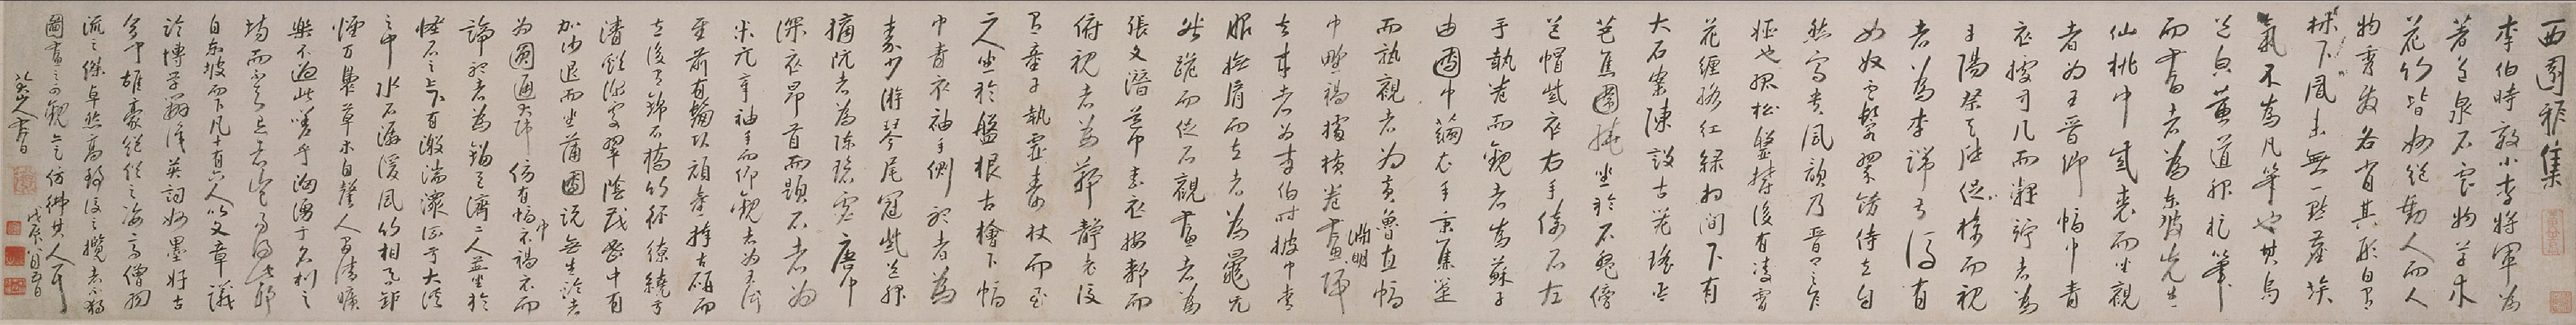 西園雅集
李伯時效小李將軍為
著色泉石雲物草木
花竹皆妙絕動人而人
物秀發各肖其形自有
林下風味無一點塵埃
氣不為凡筆也其烏
帽黃道服捉筆
而書者為東坡先生
仙桃巾紫裘而坐觀
者為王晉卿幅巾青
衣據方几而凝竚者為
丹陽蔡天啟捉椅而視
者為李端叔後有
女奴雲鬟翠飾侍立自
然富貴風韻乃晉卿之家
姬也孤松盤鬱後有凌霄
花纏絡紅綠相間下有
大石案陳設古器瑤琴
芭蕉圍繞坐於石盤傍
道帽紫衣右手倚石左
手執卷而觀者為蘇子
由團巾繭衣手秉蕉箑
而熟觀者為黃魯直幅
巾野褐據橫卷畫歸
淵明
去來者為李伯時披巾青
服撫肩而立者為晁无
咎跪而捉石觀畫者為
張文潛道巾素衣按膝而
俯視者為鄭靜老後
有童子執靈壽杖而立
二人坐於盤根古檜下幅
巾青衣袖手側聽者為
秦少游琴尾冠紫道服
摘阮者為陳碧虛唐巾
深衣昂首而題石者為
米元章袖手而仰觀者為王仲
至前有髯頭頑童捧古硯而
立後有錦石橋竹徑繚繞于
清谿深處翠陰茂密中有
加沙退而坐蒲團說無生論者
為圓通大師傍有幅巾褐衣而
諦聽者為劉巨濟二人並坐於
怪石之上下有激湍潀流于大溪
之中水石潺湲風竹相吞爐
煙方裊草木自馨人間清曠
樂不過此嗟乎洶湧于名利之
場而不知退者豈易得此耶
自東坡而下凡十有六人以文章議
論博學辨識英詞妙墨好古
多聞雄豪絕俗之資高僧羽
流之傑卓然高致後之攬者不獨
圖畫之可觀亦足仿彿其人耳
戊辰八月
八大山人書